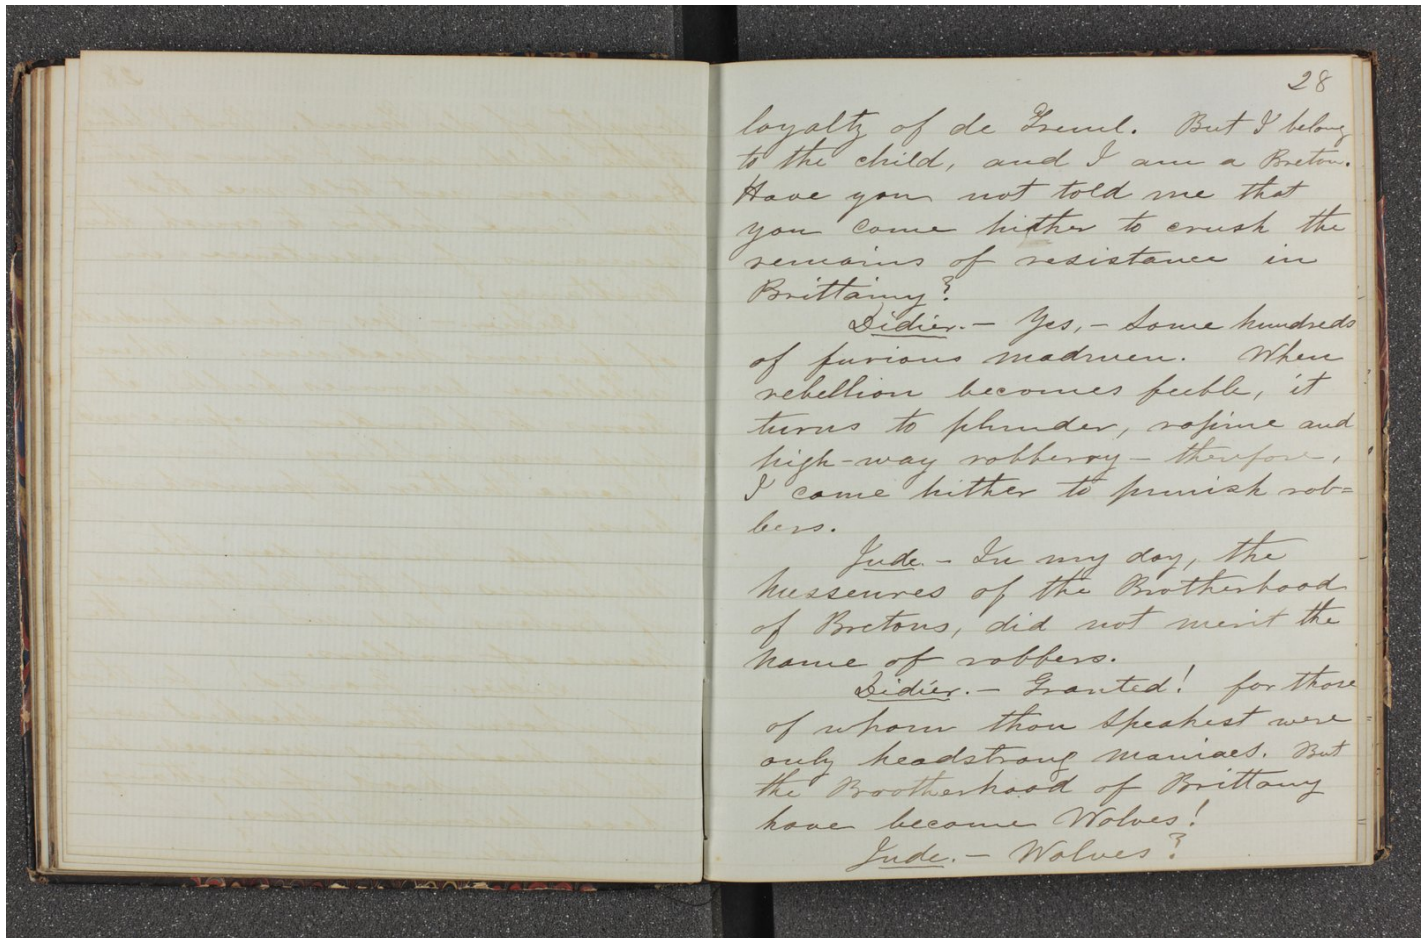 28
loyalty of de Treml. But I belong
to the child, and I am a Breton.
Have you not told me that
you come hither to crush the
remains of resistance in
Brittainy?
Didier. — Yes, — some hundreds
of furious madmen. When
rebellion becomes feeble, it
turns to plunder, rapine and
high-way robberry — therefore,
I come hither to punish rob=
bers.
Jude. — In my day, the
of the Brotherhood
of Bretons, did not merit the
name of robbers.
Didier. — Granted! for those
of whom thou speakest were
only headstrong maniacs. But
the Brootherhood of Brittany
have become Wolves!
Jude. — Wolves?